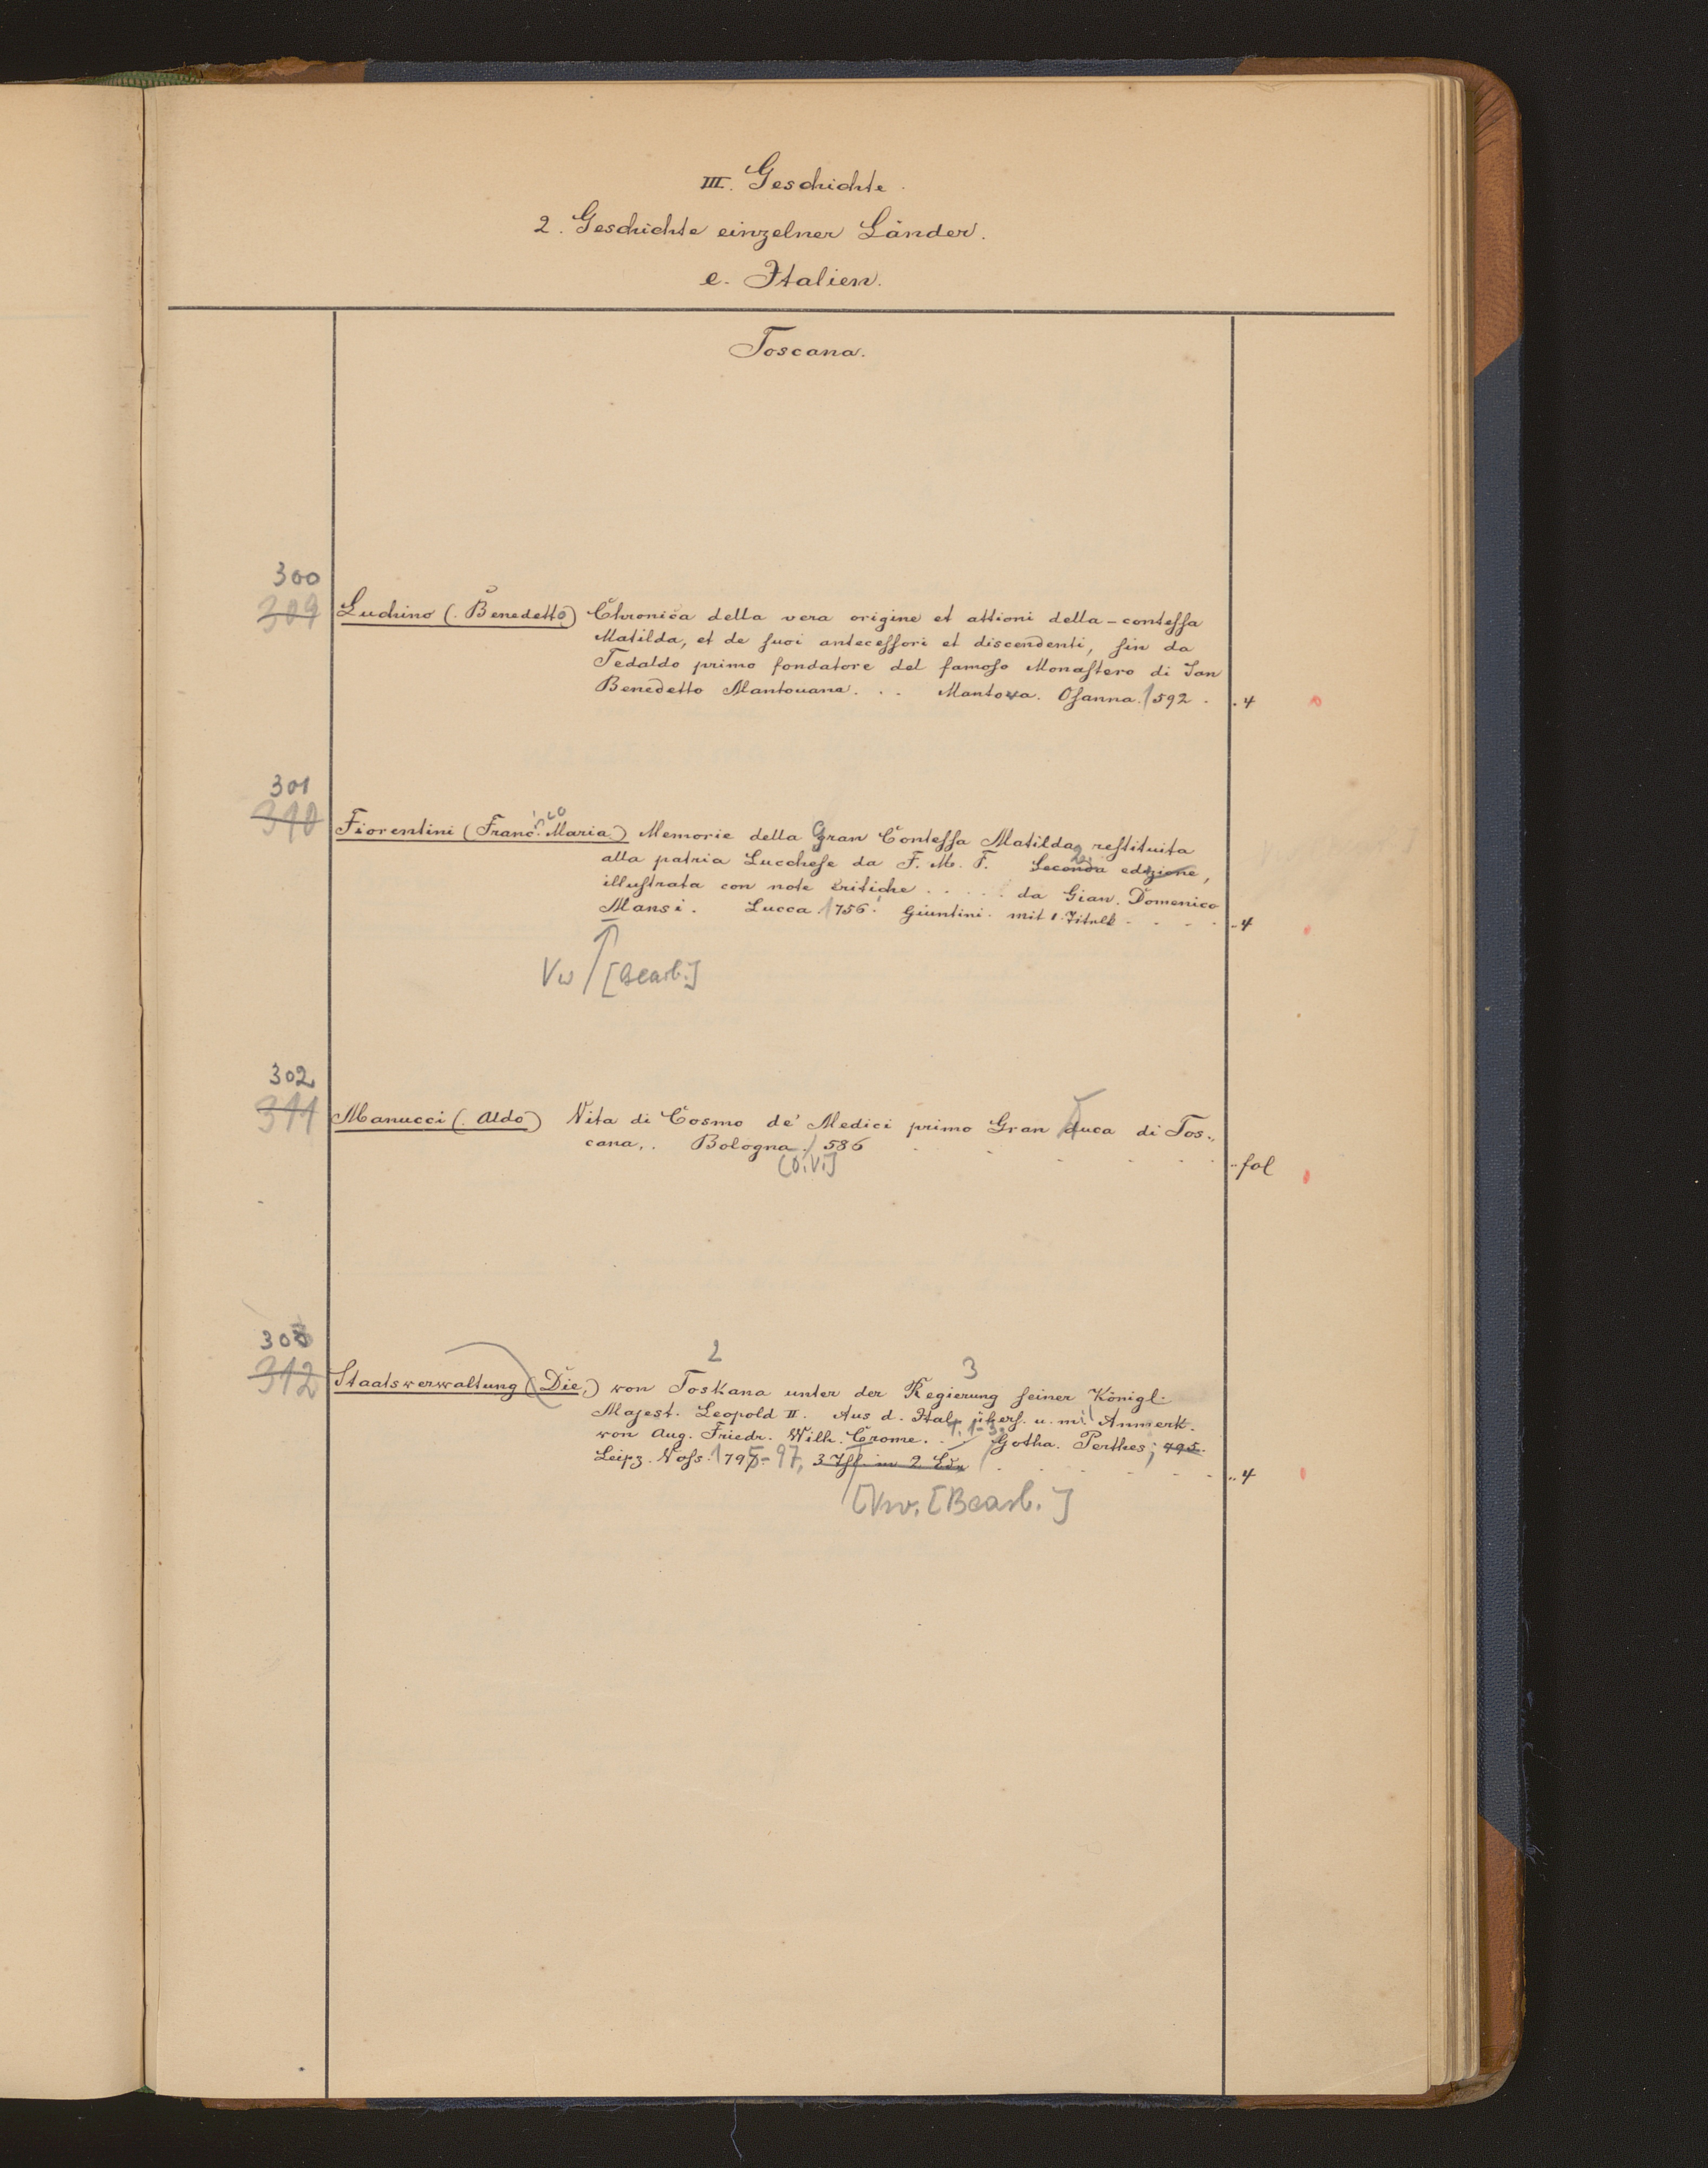 III. Geschichte.
2. Geschichte einzelner Länder.
e. Italien.
Toscana.
300
309 Luchino (. Benedetto) Chronica della vera origine et attioni della - contessa
Matilda, et de suoi antecessori et discendenti, sin da
Tedaldo primo fondatore del famoso Monastero di San
Benedetto Mantouana. . . Mantova. Osanna. 1592 . . 4
301
310 Fiorentini (Franc. Maria) Memorie della Gran Contessa Matilda restituita
inco
alla patria Lucchese da F. M. F. Seconda edizione,
2.
illustrata con note critiche . . . . . da Gian. Domenico
Mansi. Lucca. 1756. Giuntini. mit 1. Titelk - - - - 4
Vw [Bearb.]
302
311 Manucci (. Aldo) Vita di Cosmo de' Medici primo Gran duca di Tos.,
cana,. . Bologna. 1586 . . . . . fol
[o. V.]
303
312 Staatsverwaltung (Die,) von Toskana unter der Regierung seiner Königl.
2 3
Majest. Leopold II. Aus d. Ital. übers. u. mit Anmerk.
von Aug. Friedr. Wilh. Crome. . T. 1-3. Gotha. Perthes; 795.
Leipz. Voss. 1795-97, 3 Thl. in 2 Bdn . . . . . 4
[Vw. [Bearb.]